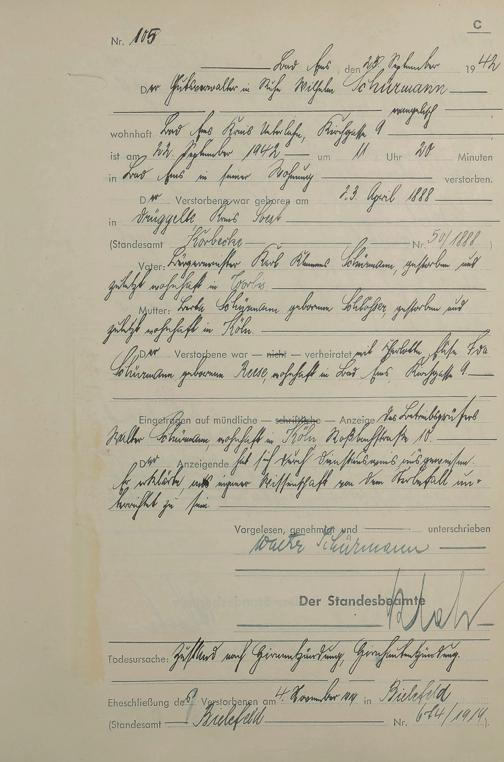 C
Nr. 105
Bad Ems, den 23. September 1942
Der Gutsverwalter in Ruhe Wilhelm Schürmann
evangelisch
wohnhaft Bad Ems Kreis Unterlahn, Kirchgasse 9
ist am 22. September 1942 um 11 Uhr 20 Minuten
in Bad Ems in seiner Wohnung verstorben.
Der Verstorbene war geboren am 23. April 1888
in Drüggelte Kreis Soest
(Standesamt Körbecke Nr. 50/1888)
Vater: Bürgermeister Karl Klemens Schürmann, gestorben und
zuletzt wohnhaft in
Mutter: Schürmann geborene Schlösser, gestorben und
zuletzt wohnhaft in Köln
Der Verstorbene war — nicht — verheiratet mit Charlotte, Luise Frda
Schürmann geborenen Reese, wohnhaft in Bad Ems Kirchgasse 9
Eingetragen auf mündliche — schriftliche — Anzeige des Betriebsprüfers
Walter Schürmann, wohnhaft in Köln 10.
Der Anzeigende hat sich durch Dienstausweis ausgewiesen.
Er erklärte, aus eigener Wissenschaft von dem Sterbefall un-
terrichtet zu sein.
Vorgelesen, genehmigt und unterschrieben
Walter Schürmann
Der Standesbeamte
Todesursache: Zustand nach Hirnentzündung, Gehirnhautentzündung.
Eheschließung des Verstorbenen am 4. November 1914 in Bielefeld
(Standesamt Bielefeld Nr. 664/1914)